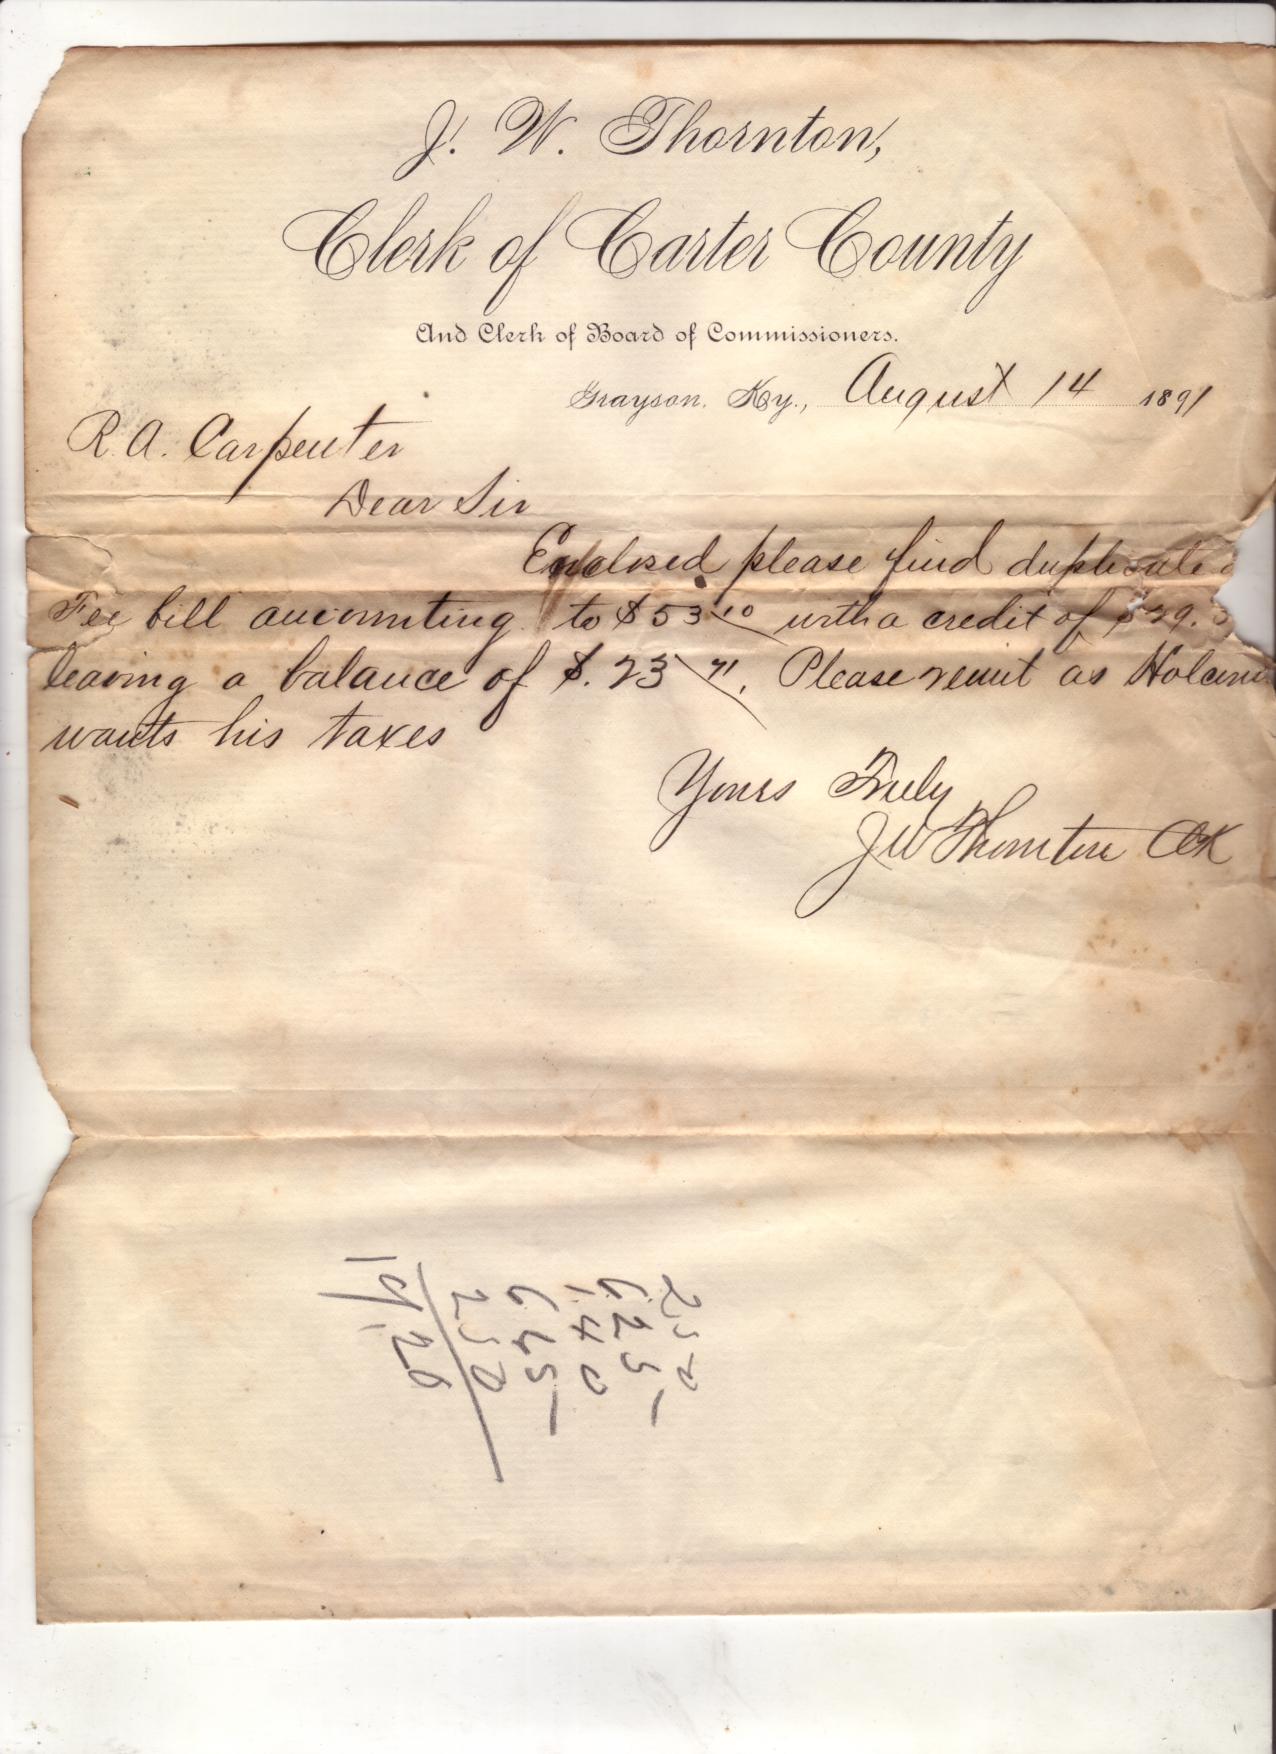 J. W. Thornton,
Clerk of Carter County
And Clerk of Board of Commissioners.
Grayson, Ky., August 14 1891
R. A. Carpenter
Dear Sir
Enclosed please find duplicate
Fee bill amounting to $53 10 with a credit of $29.3
leaving a balance of $. 23 71. Please remit as Holcom
wants his taxes
Yours Truly
J W Thornton Clk
2 5 0
6 2 5
1 4 0
6 6 5
2 5 0
19.20